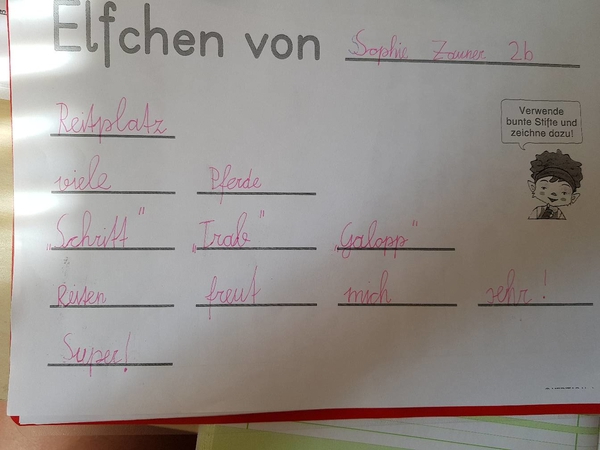 Elfchen von Sophie Zauner 2b
Verwende
bunte Stifte und
zeichne dazu!
Reitplatz
viele Pferde
„Schritt" „Trab" „Galopp"
Reiten freut mich sehr!
Super!